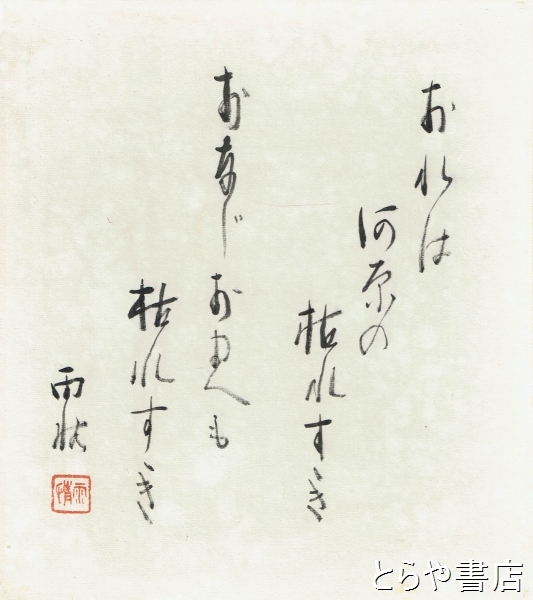 おれは
河原の
枯れすき
おなじおまへも
枯れすき
雨情
雨情
とらや書店